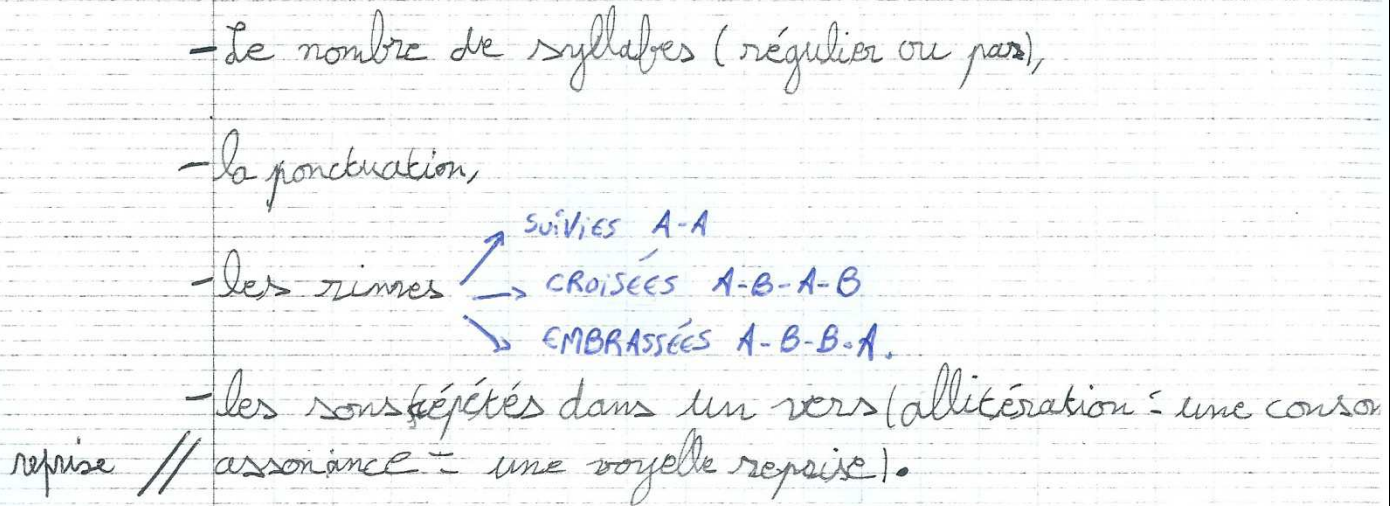 - Le nombre de syllabes (régulier ou pas),
- la ponctuation,
SUIVIES A-A
- les rimes → CROISÉES A-B-A-B
EMBRASSÉES A-B-B-A.
- les sons répétés dans un vers (allitération = une conson
reprise // assonance = une voyelle reprise).